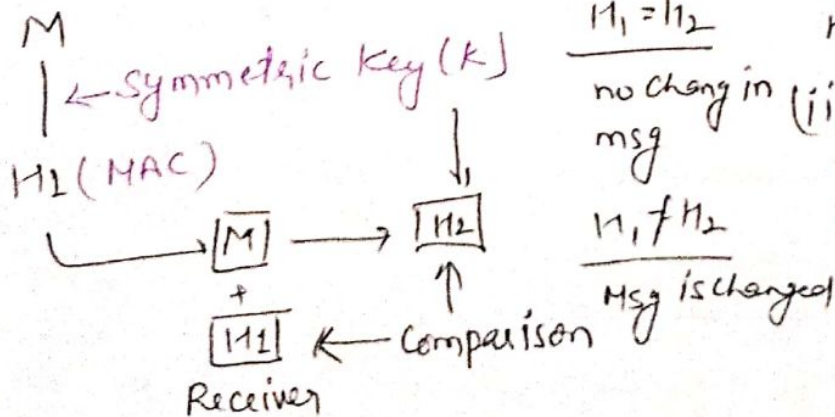 M
← Symmetric Key (K)
H1 (MAC)
M → H2
+
H1 ← Comparison
Receiver
H1 = H2
no chang in
msg
H1 ≠ H2
Msg is changed
(ii